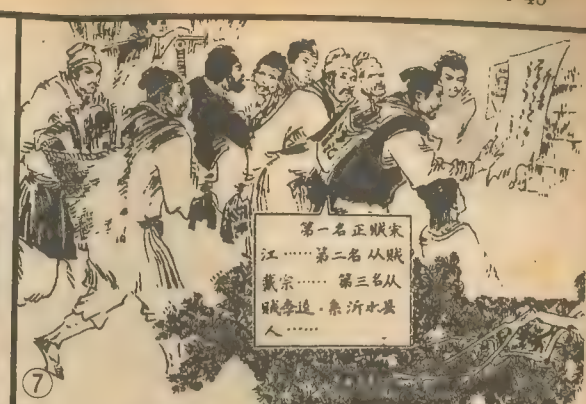 第一名正贼宋
江……第二名从贼
戴宗……第三名从
贼李逵·系沂水县
人……
⑦